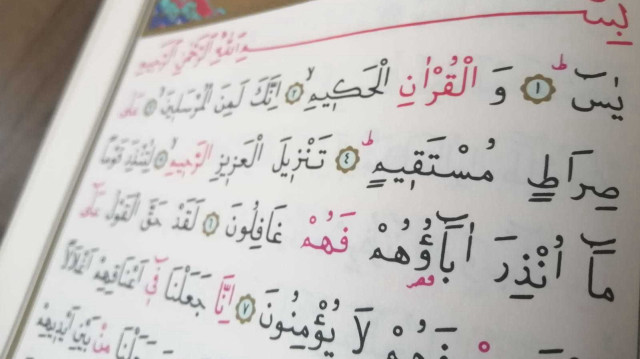 بِسْمِ اللّٰهِ الرَّحْمٰنِ الرَّحِيمِ
يٰسٓ ۚ ﴿١﴾ وَ الْقُرْاٰنِ الْحَكٖيمِۙ ﴿٢﴾ اِنَّكَ لَمِنَ الْمُرْسَلٖينَۙ ﴿٣﴾ عَلٰى
صِرَاطٍ مُسْتَقٖيمٍؕ ﴿٤﴾ تَنْزٖيلَ الْعَزٖيزِ الرَّحٖيمِۙ ﴿٥﴾ لِتُنْذِرَ قَوْمًا
مَٓا اُنْذِرَ اٰبَٓاؤُ۬هُمْ فَهُمْ غَافِلُونَ ﴿٦﴾ لَقَدْ حَقَّ الْقَوْلُ عَلٰٓى
فَهُمْ لَا يُؤْمِنُونَ ﴿٧﴾ اِنَّا جَعَلْنَا فٖٓي اَعْنَاقِهِمْ اَغْلَالًا
مِنْ بَيْنِ اَيْدٖيهِمْ